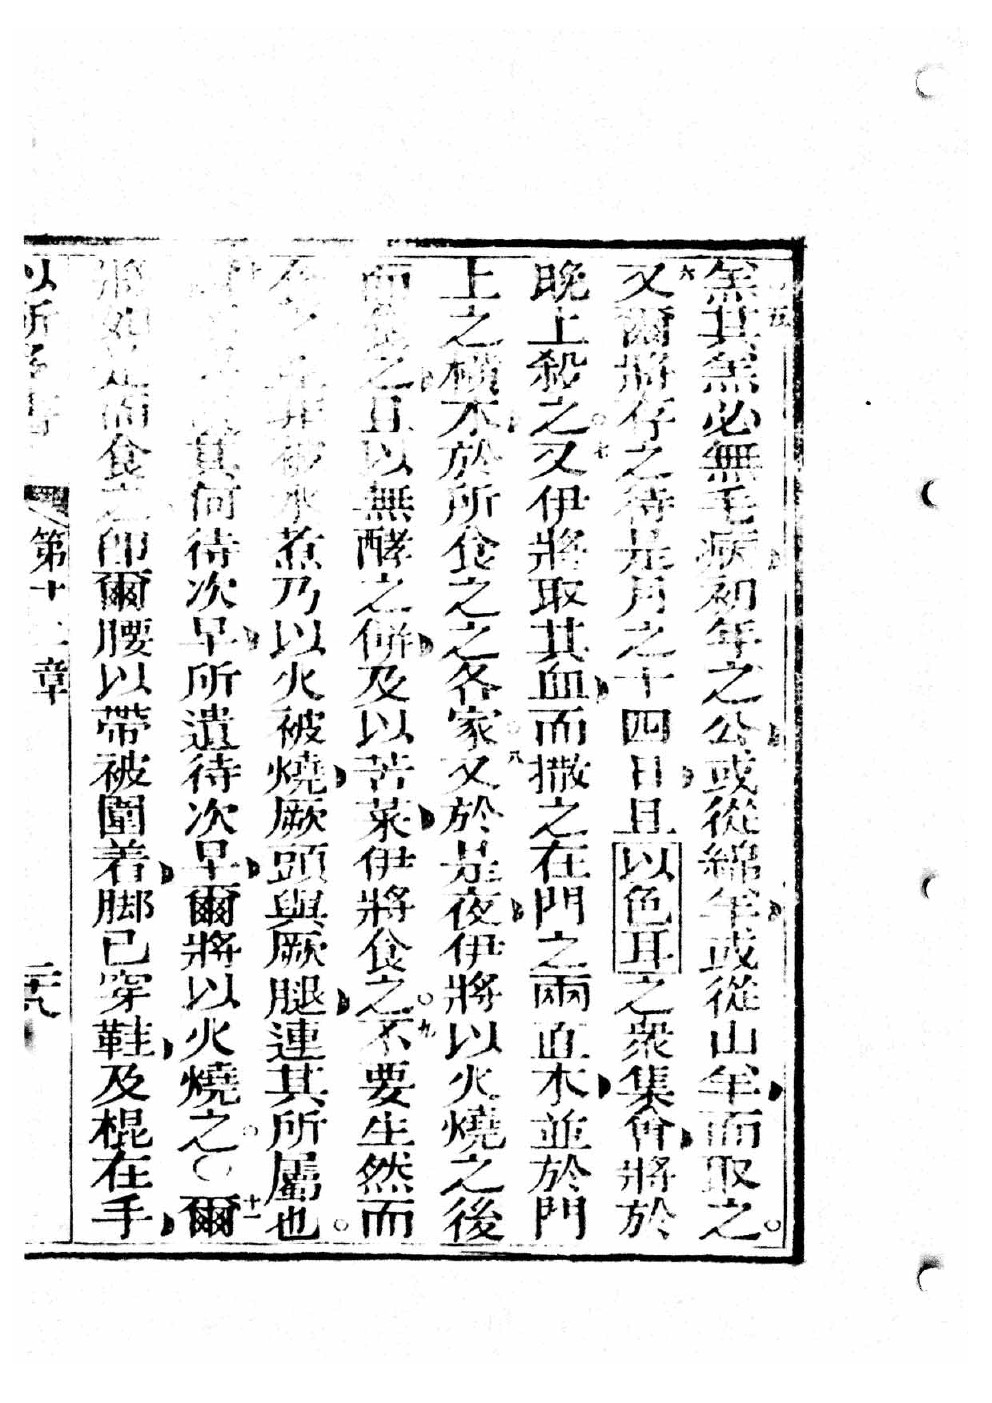 五羔其羔必無毛病初年之公或從綿羊或從山羊而取之。
六又爾將存之待是月之十四日且以色耳之衆集會將於
晚上殺之。七又伊將取其血而撒之在門之兩直木並於門
上之橫木於所食之之各家。八又於是夜伊將以火燒之後
而食之且以無酵之餅及以苦菜伊將食之。九不要生然而
食之並非被水煮乃以火被燒厥頭與厥腿連其所屬也。
其何待次早所遺待次早爾將以火燒之。〇十一爾
將如是而食之卽爾腰以帶被圍着脚已穿鞋及棍在手
第十 章 二十八